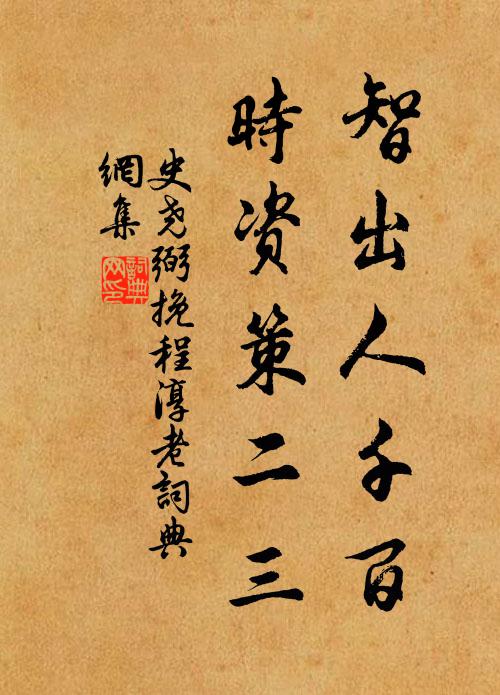 智出人千百
時資策二三
史堯弼挽程淳老詞典
網集
詞典網印